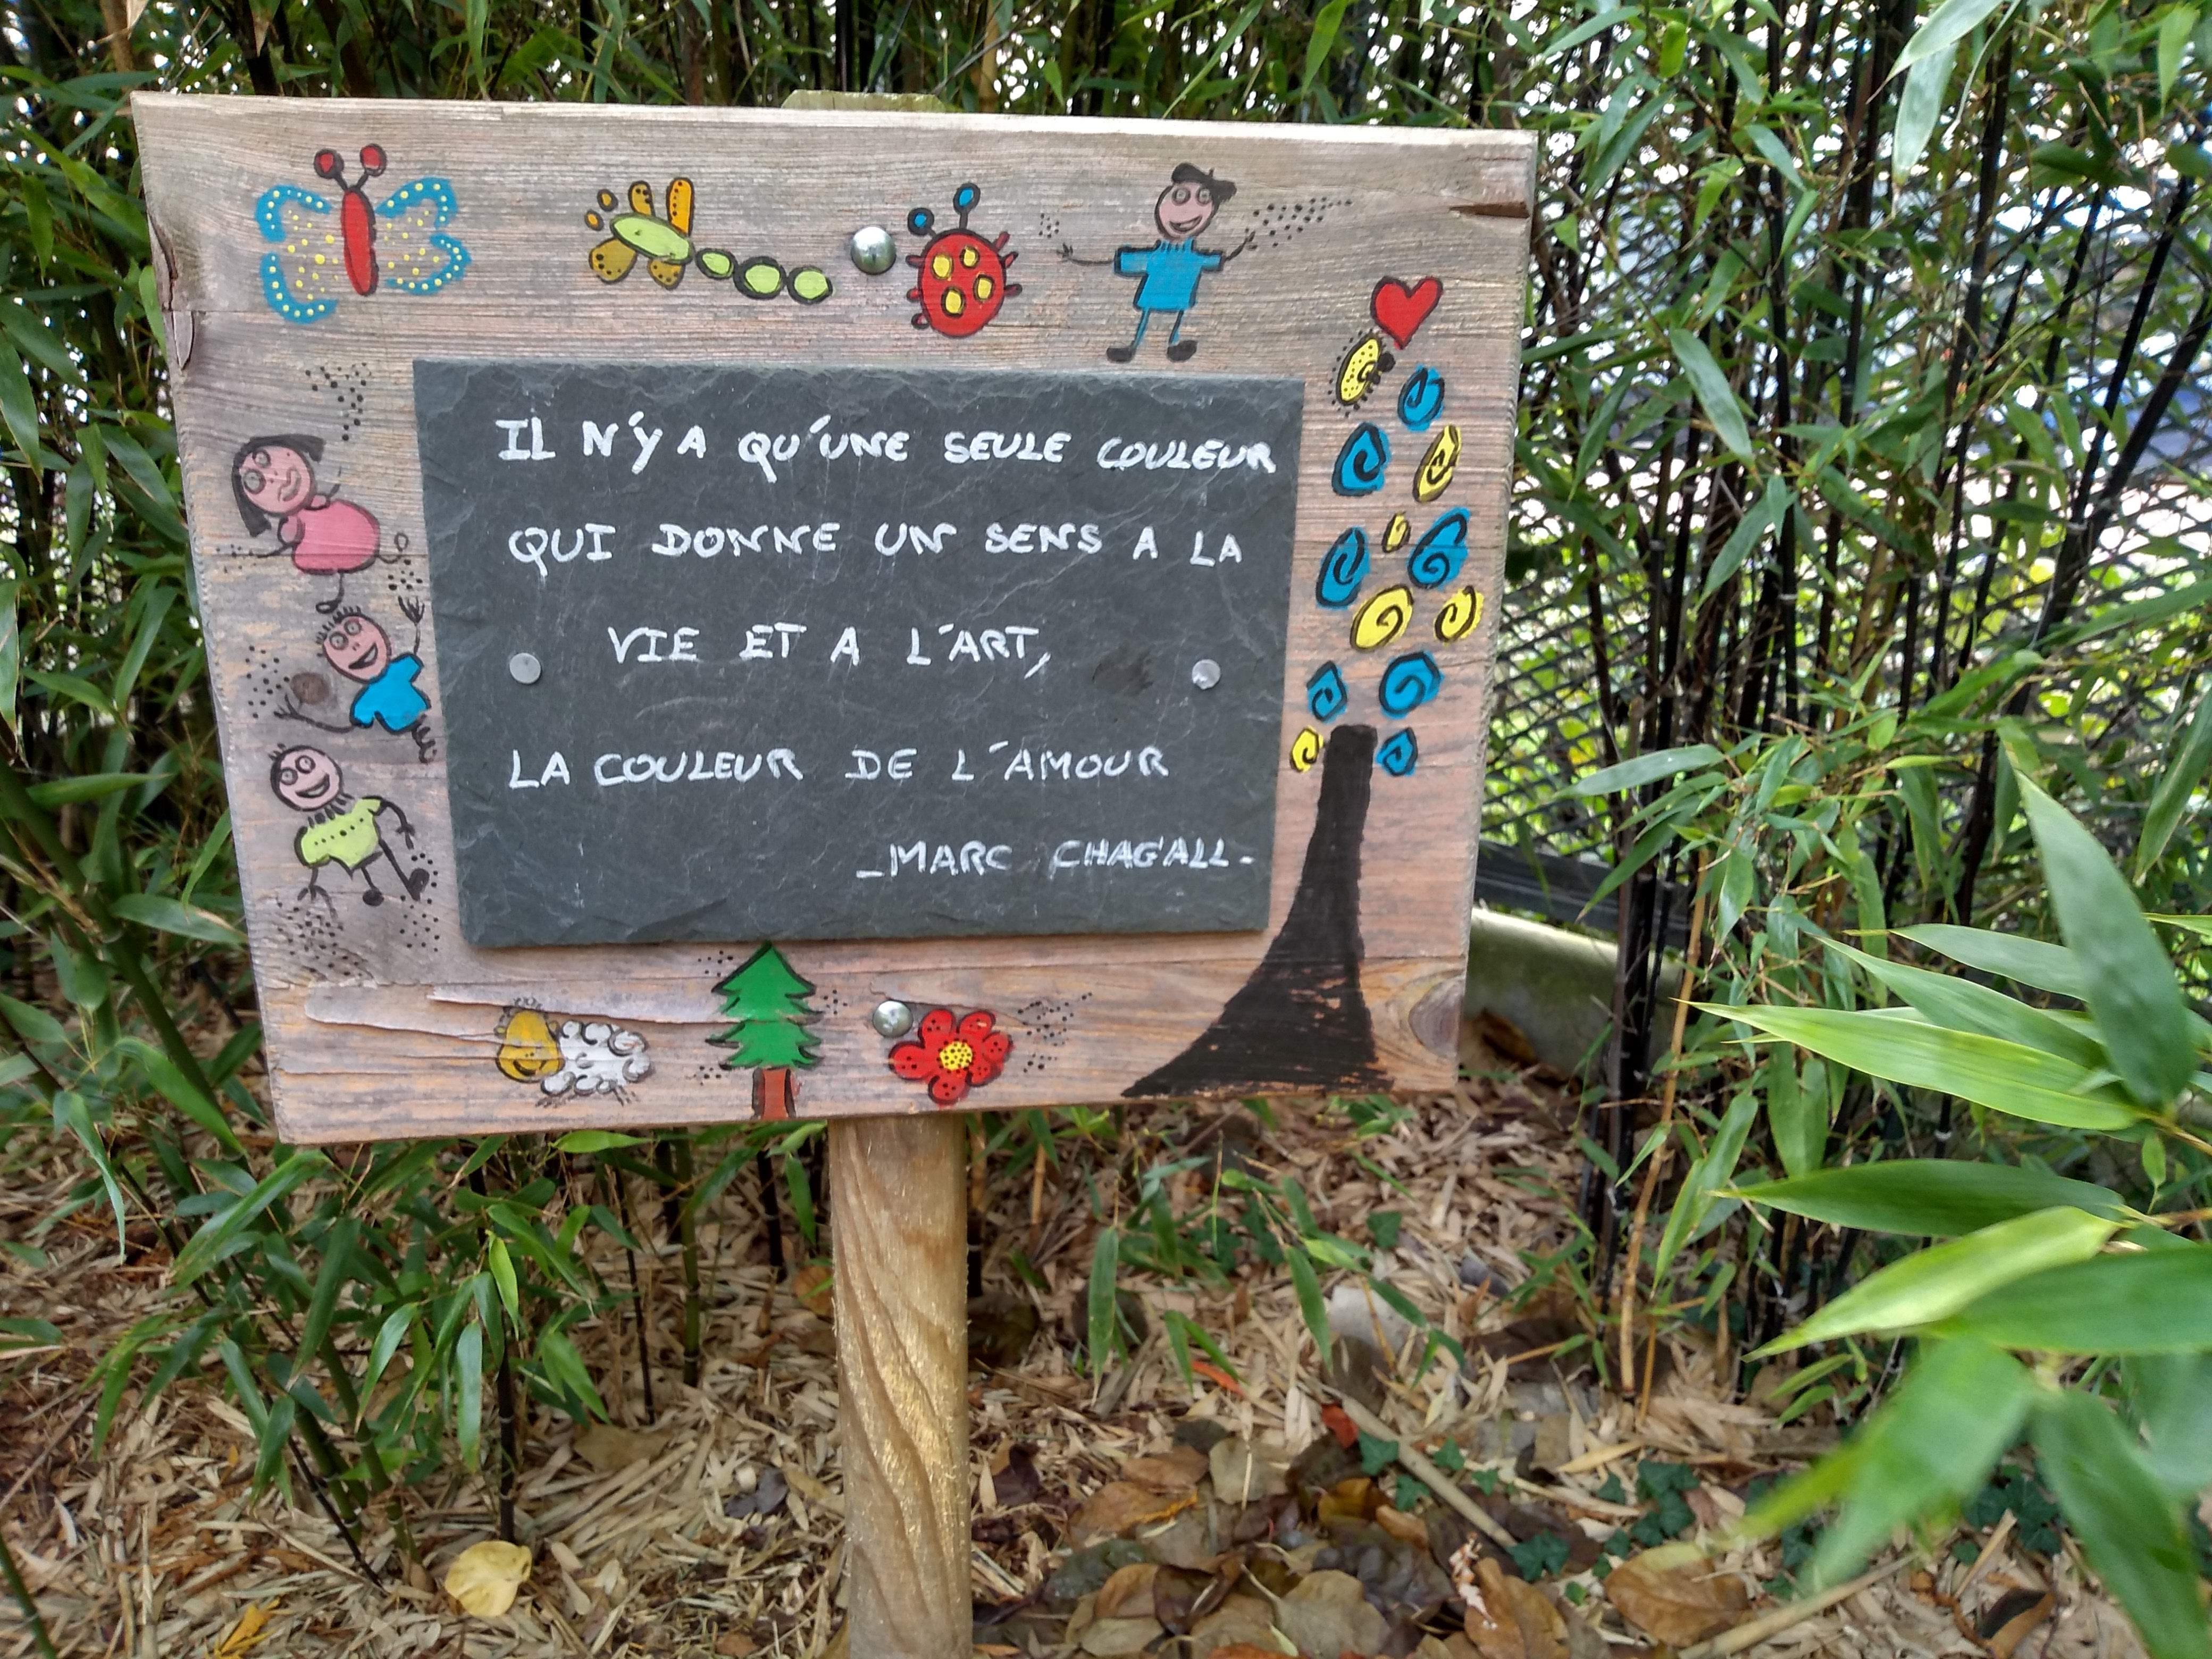 IL N'Y A QU'UNE SEULE COULEUR
QUI DONNE UN SENS A LA
VIE ET A L'ART,
LA COULEUR DE L'AMOUR
_MARC CHAG'ALL-